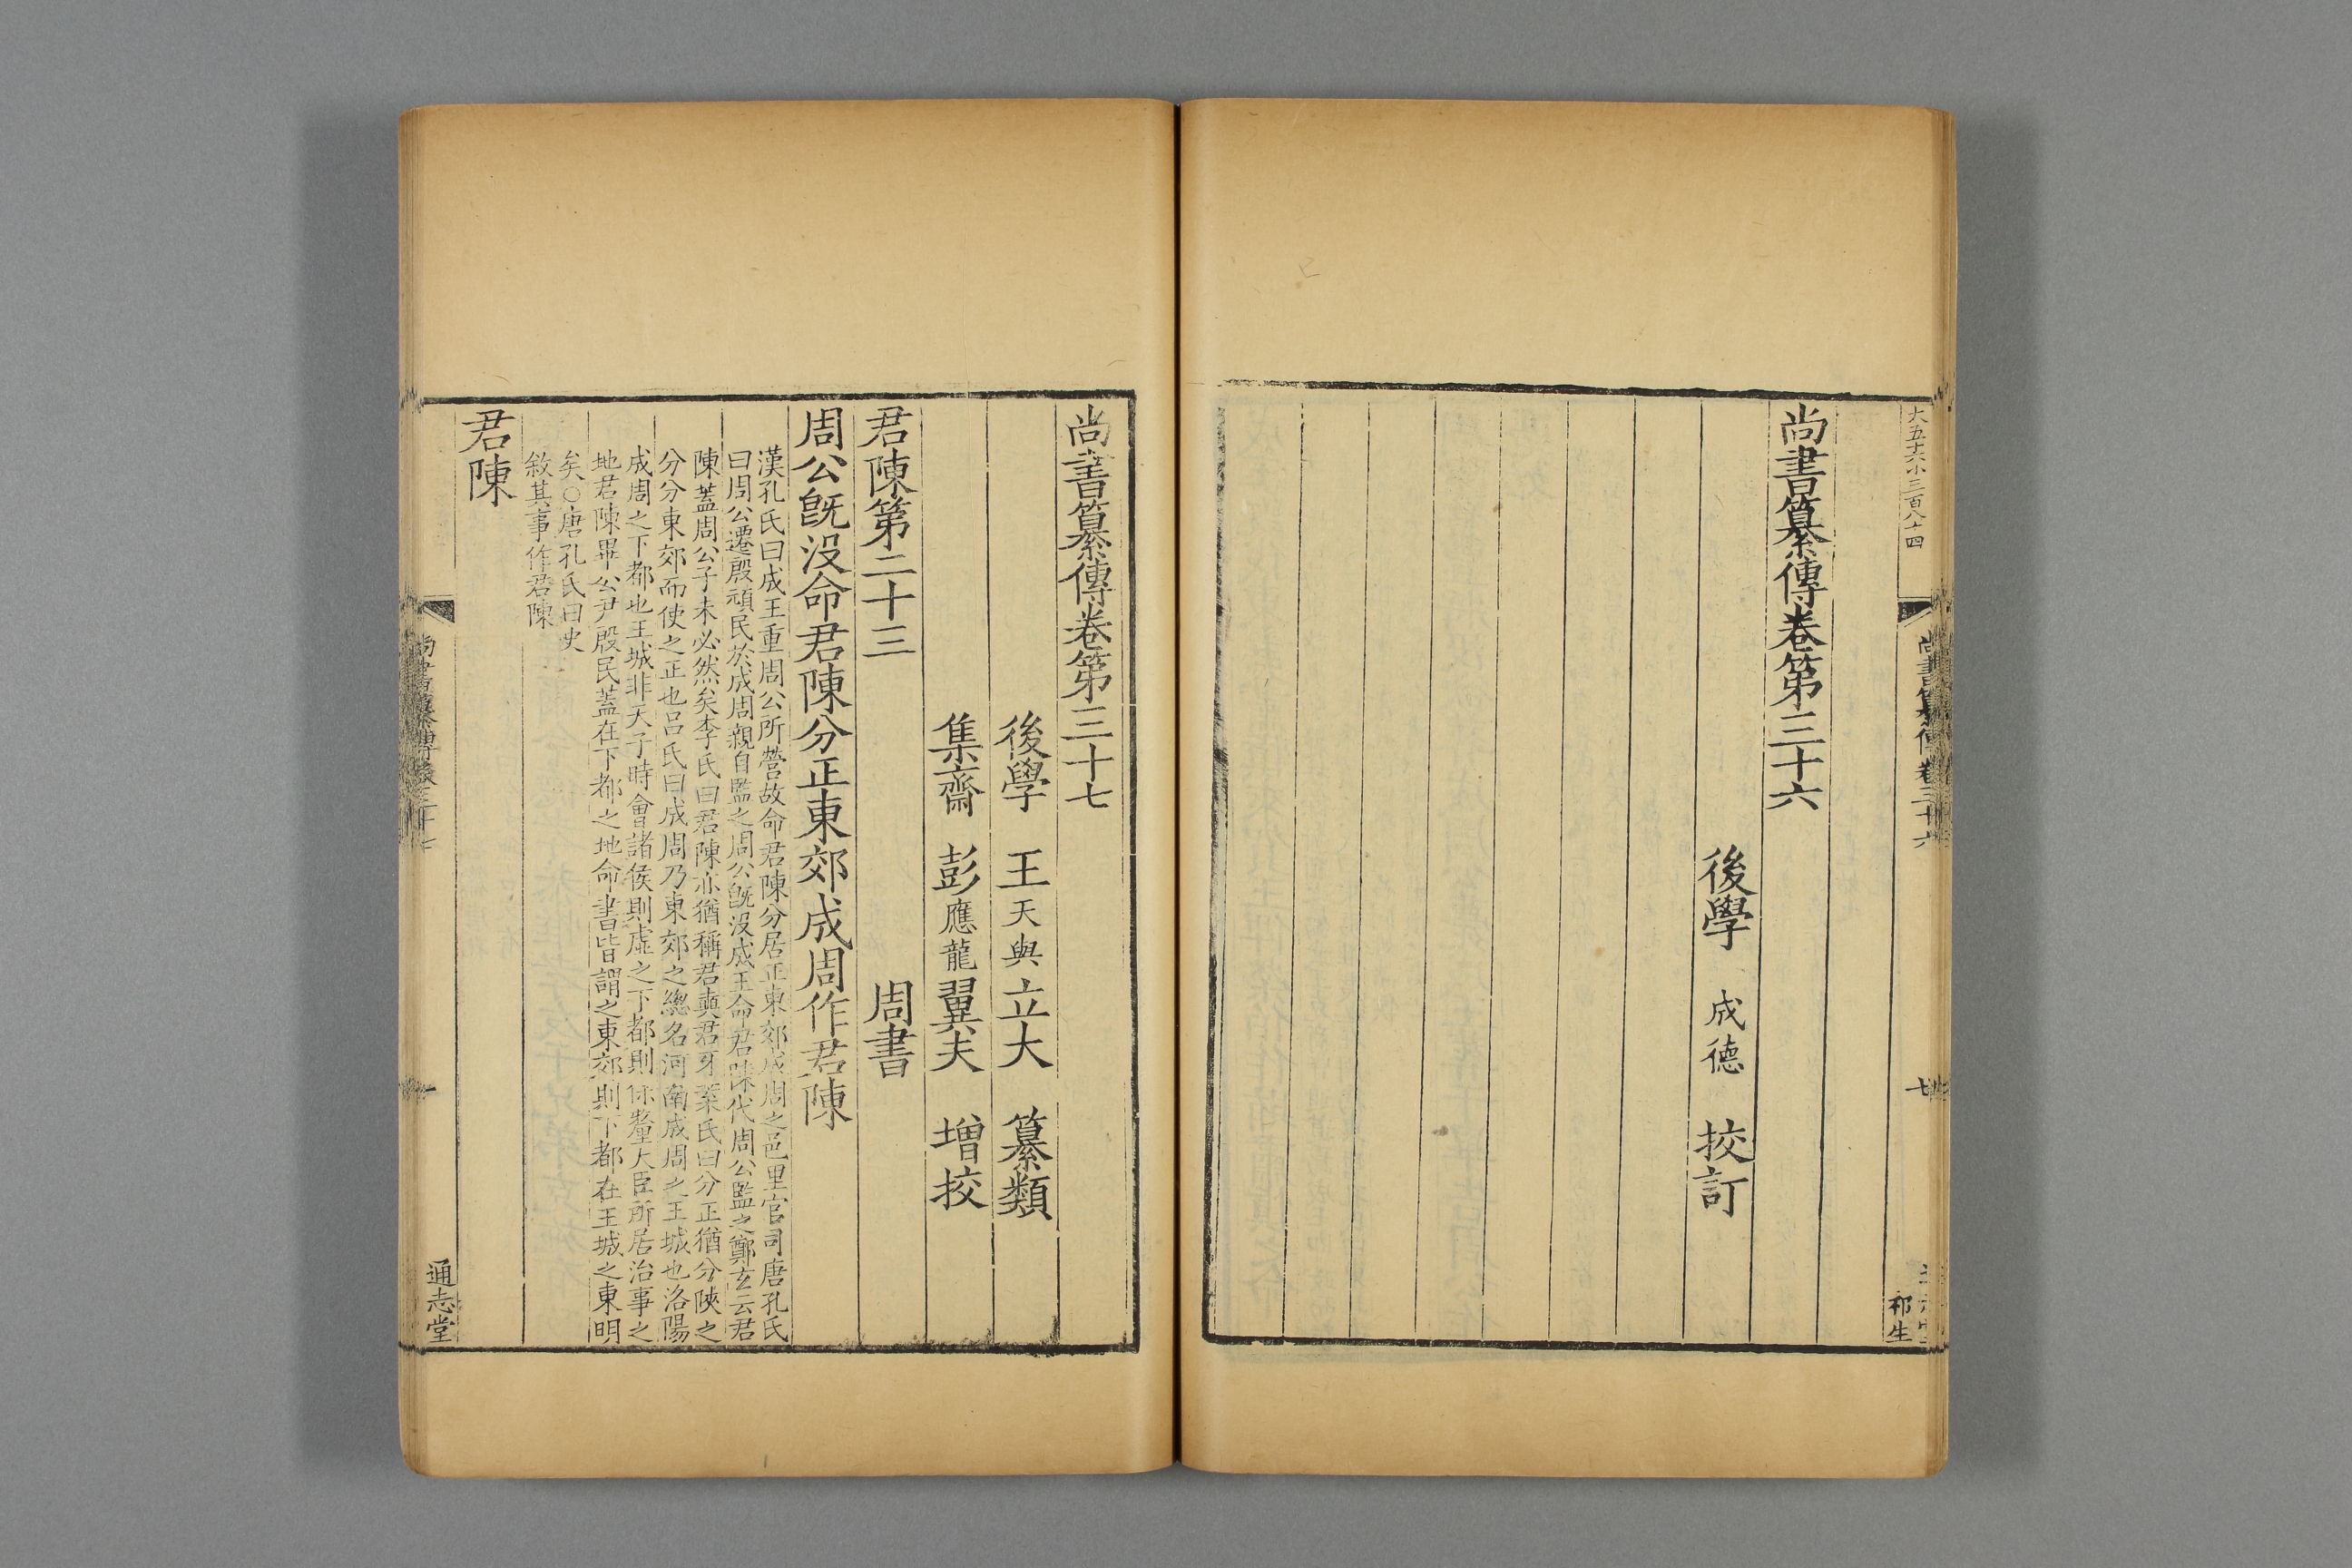 大五十六小三百八十四
尚書纂傳卷三十六
七
祁生
尚書纂傳卷第三十六
後學 成德 挍訂
尚書纂傳卷第三十七
後學 王天與立大 纂類
集齋 彭應龍翼夫 增挍
君陳第二十三 周書
周公旣沒命君陳分正東郊成周作君陳
漢孔氏曰成王重周公所營故命君陳分居正東郊成周之邑里官司唐孔氏
曰周公遷殷頑民於成周親自監之周公旣沒成王命君陳代周公監之鄭玄云君
陳蓋周公子未必然矣李氏曰君陳亦猶稱君奭君牙葉氏曰分正猶分陝之
分分東郊而使之正也呂氏曰成周乃東郊之總名河南成周之王城也洛陽
成周之下都也王城非天子時會諸侯則虛之下都則保釐大臣所居治事之
地君陳畢公尹殷民蓋在下都之地命書皆謂之東郊則下都在王城之東明
矣○唐孔氏曰史
敘其事作君陳
君陳
尚書纂傳卷三十七
一
通志堂